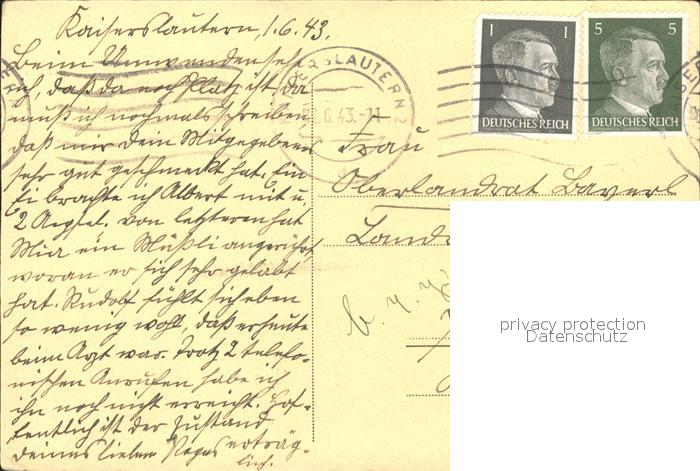 Kaiserslautern, 1.6.43.
Beim Umwenden seh
ich, daß da noch Platz ist. Da
muß ich nochmals schreiben
daß mir Dein Mitgegebenes
sehr gut geschmeckt hat. Ein
Ei brachte ich Albert mit u.
2 Aepfel. von letzteren hat
Mia ein Müßli angerührt,
woran er sich sehr gelabt
hat. Rudolf fühlt sich eben
so wenig wohl, daß er heute
beim Arzt war. Trotz 2 telefo-
nischen Anrufen habe ich
ihn noch nicht erreicht. Hof-
fentlich ist der Zustand
Deines lieben erträg-
lich.
KAISERSLAUTERN 2
6.43.-11
1 1
DEUTSCHES REICH
5 5
DEUTSCHES REICH
Frau
Oberlandrat Bayerl
privacy protection
Datenschutz